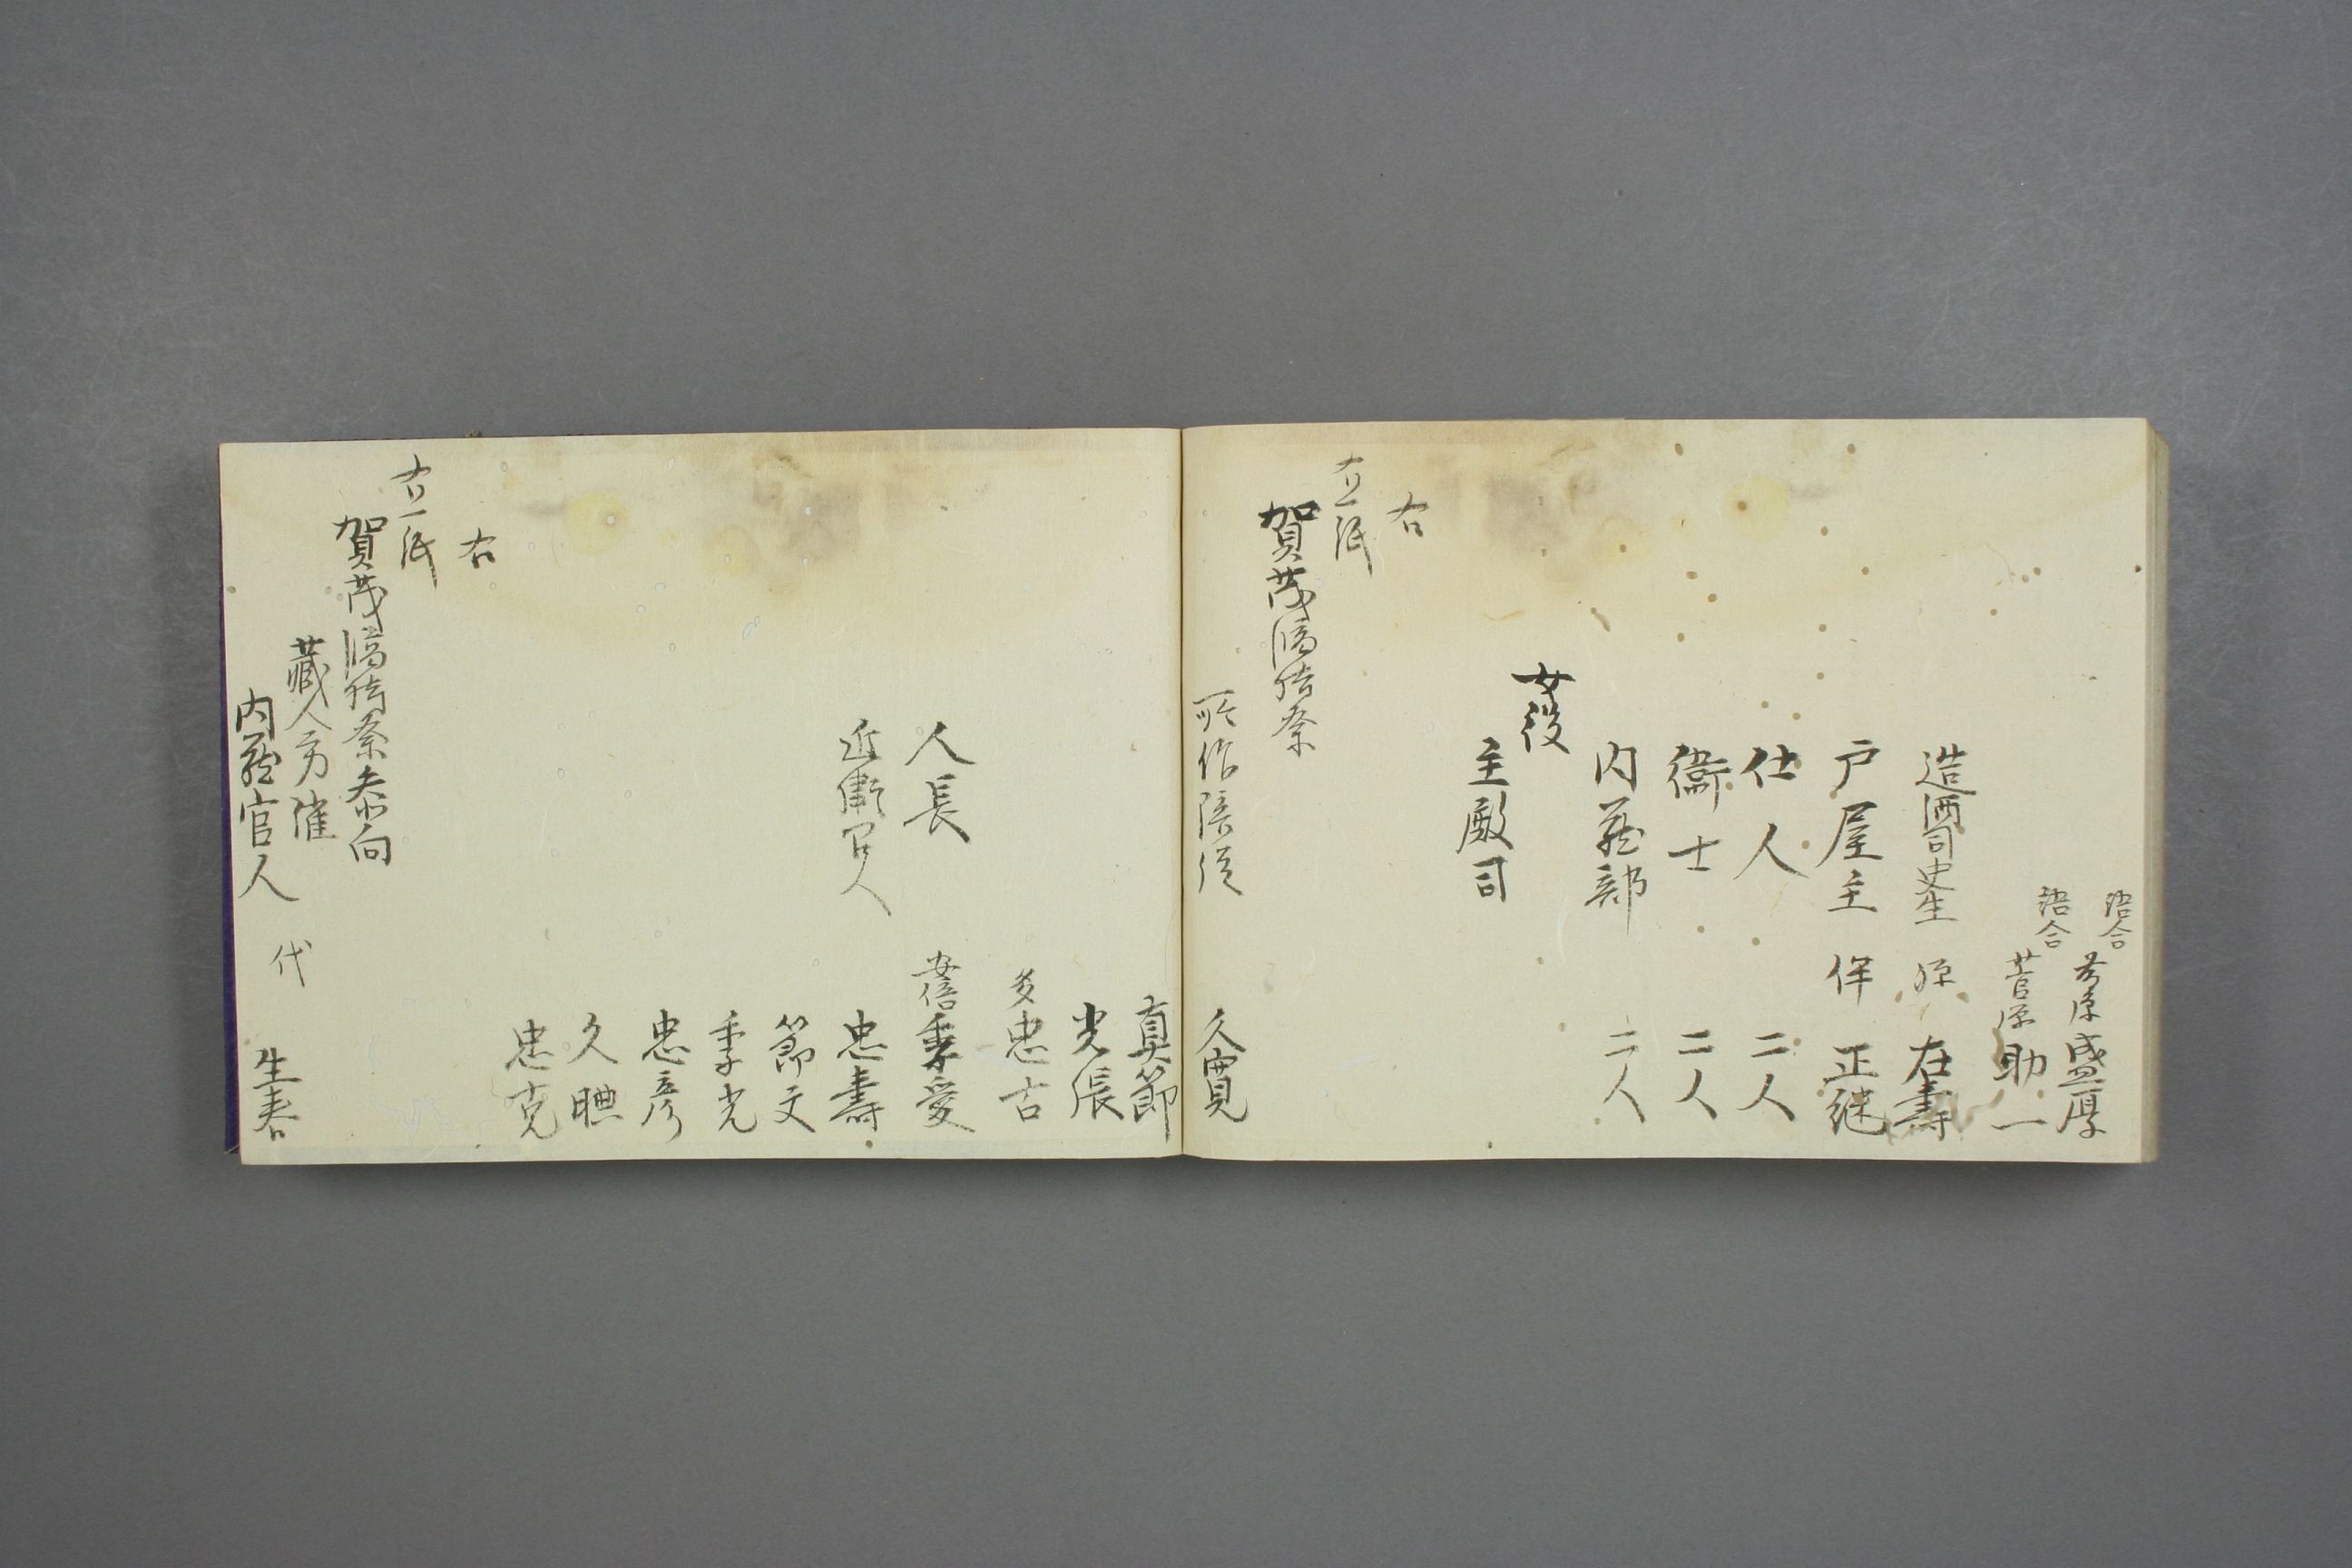 語合 藤原盛厚
語合 菅原助一
造酒司史生 源在壽
戸屋主 伴正継
仕人 二人
衛士 二人
内蔵部 二人
女役
主殿司
右
右一紙
賀茂臨時祭
所作陪従 久寛
真節
光張
多忠古
人長 安倍季愛
近衛召人 忠壽
節文
季光
忠彦
久腆
忠克
右
右一紙
賀茂臨時祭参向
蔵人方催
内蔵官人代 生春